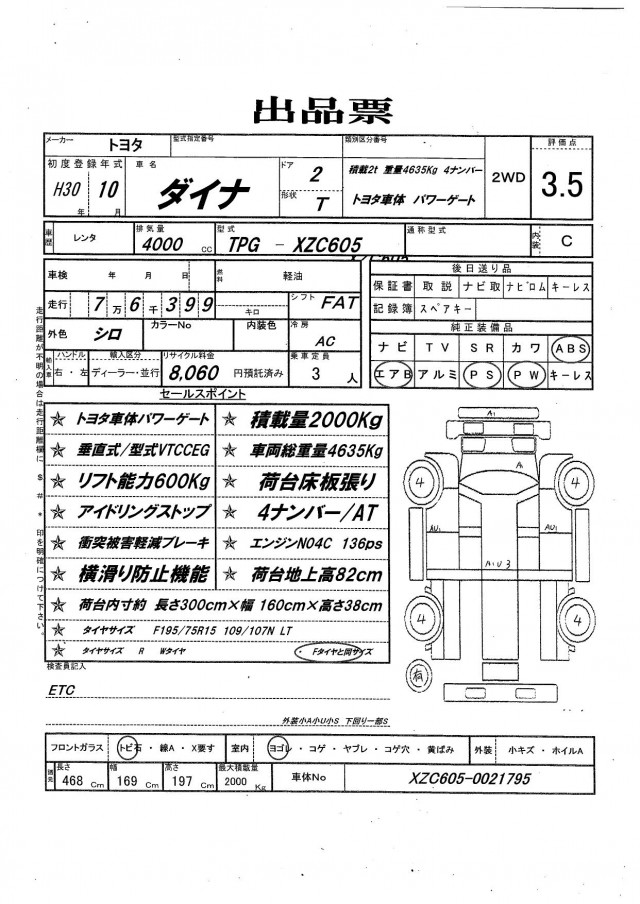 出品票
メーカー トヨタ 型式指定番号 類別区分番号 評価点
初度登録年式 車名 ドア 2 積載2t 重量4635Kg 4ナンバー 2WD 3.5
H30年 10月 ダイナ 形状 T トヨタ車体 パワーゲート
車歴 レンタ 排気量 4000 CC 型式 TPG - XZC605 通称型式 内装 C
XZC605
車検 年 月 日 燃料 軽油 後日送り品
保証書 取説 ナビ取 ナビロム キーレス
走行 7万6千399 キロ シフト FAT 記録簿 スペアキー
外色 シロ カラーNo 内装色 冷房 AC 純正装備品
ナビ TV SR カワ ABS
輸入車 ハンドル 右・左 輸入区分 ディーラー・並行 リサイクル料金 8,060 円預託済み 乗車定員 3 人 エアB アルミ PS PW キーレス
走行距離が不明の場合は走行距離欄に $ # * 印を明確につけて下さい。
セールスポイント
☆ トヨタ車体パワーゲート ☆ 積載量2000Kg
☆ 垂直式/型式VTCCEG ☆ 車両総重量4635Kg
☆ リフト能力600Kg ☆ 荷台床板張り
☆ アイドリングストップ ☆ 4ナンバー/AT
☆ 衝突被害軽減ブレーキ ☆ エンジンN04C 136ps
☆ 横滑り防止機能 ☆ 荷台地上高82cm
☆ 荷台内寸約 長さ300cm×幅 160cm×高さ38cm
☆ タイヤサイズ F195/75R15 109/107N LT
☆ タイヤサイズ R Wタイヤ ・Fタイヤと同サイズ
A1
A1
4 4
AU1 AU1
AU3
4 4
有
検査員記入
ETC
外装小A小U小S 下回り一部S
フロントガラス トビ石・線A・X要す 室内 ヨゴレ・コゲ・ヤブレ・コゲ穴・黄ばみ 外装 小キズ・ホイルA
諸元 長さ 468 Cm 幅 169 Cm 高さ 197 Cm 最大積載量 2000 Kg 車体No XZC605-0021795